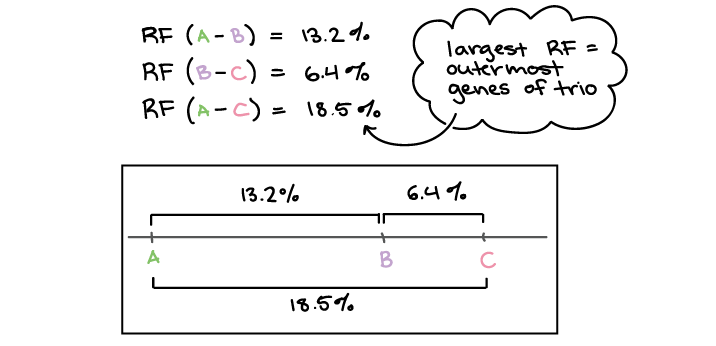 RF (A-B) = 13.2%
RF (B-C) = 6.4%
RF (A-C) = 18.5%
largest RF =
outermost
genes of trio
13.2%
6.4%
A
B
C
18.5%